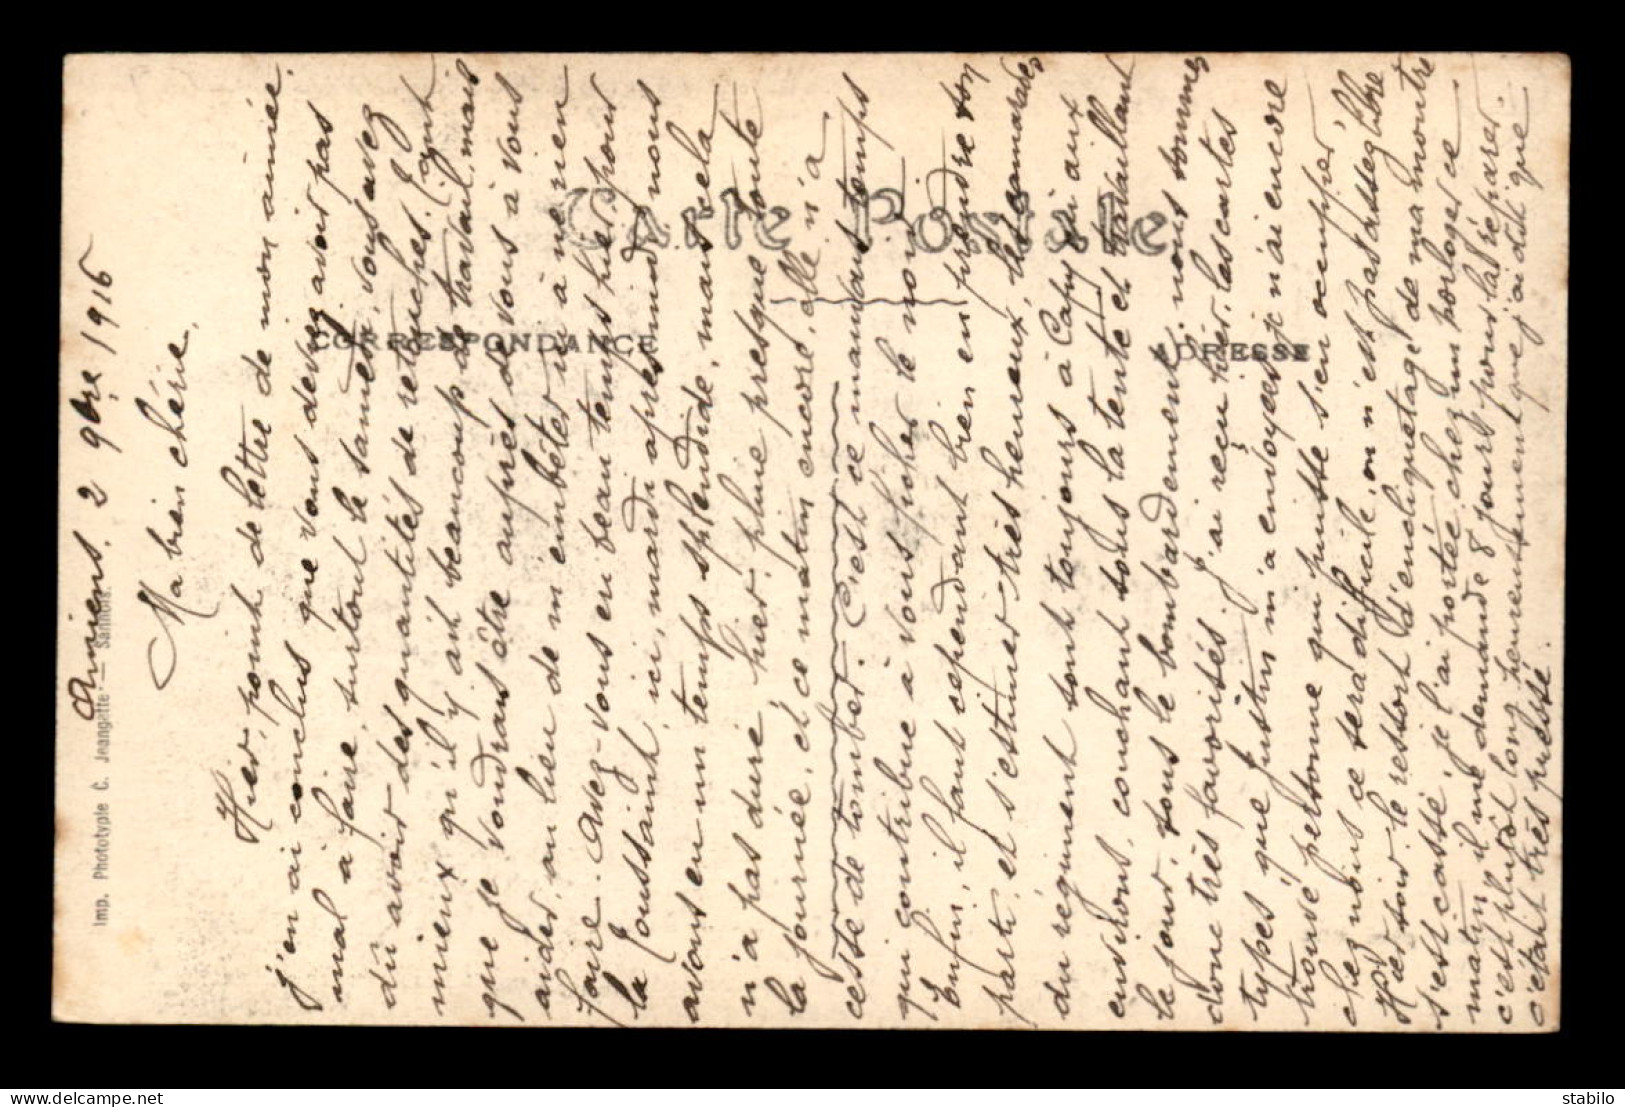 Amiens. 2 9bre 1916
Ma bien chérie,
Hier, point de lettre de mon aimée.
j'en ai conclus que vous deviez avoir pas
mal à faire, surtout le samedi, vous avez
dû avoir des quantités de retouches. Tant
mieux qu'il y ait beaucoup de travail, mais
que je voudrais être auprès de vous à vous
aider, au lieu de m'embêter ici à ne rien
faire. Avez-vous eu beau temps hier pour
la Toussaint, ici, mardi après midi nous
avons eu un temps splendide, mais cela
n'a pas duré, hier, pluie presque toute
la journée, et ce matin encore, elle n'a
cessé de tomber. C'est ce mauvais temps
qui contribue à vous ficher le noir.
Enfin, il faut cependant bien en prendre son
parti, et s'estimer très heureux, les camarades
du régiment sont toujours à Capy ou aux
environs, couchant sous la tente et travaillant
le jour, sous le bombardement, nous sommes
donc très favorisés, j'ai reçu hier, les cartes
types que Justin m'a envoyées, je n'ai encore
trouvé personne qui puisse s'en occuper,
chez nous ce sera difficile, on n'est pas assez libre
Hier soir, le ressort d'encliquetage de ma montre
s'est cassé, je l'ai portée chez un horloger ce
matin, il me demande 8 jours pour la réparer.
c'est plutôt long, heureusement que j'ai dit que
c'était très pressé.
Carte Postale
CORRESPONDANCE
ADRESSE
Imp. Phototypie C. Jeangette. — Sannois.
stabilo
delcampe.net